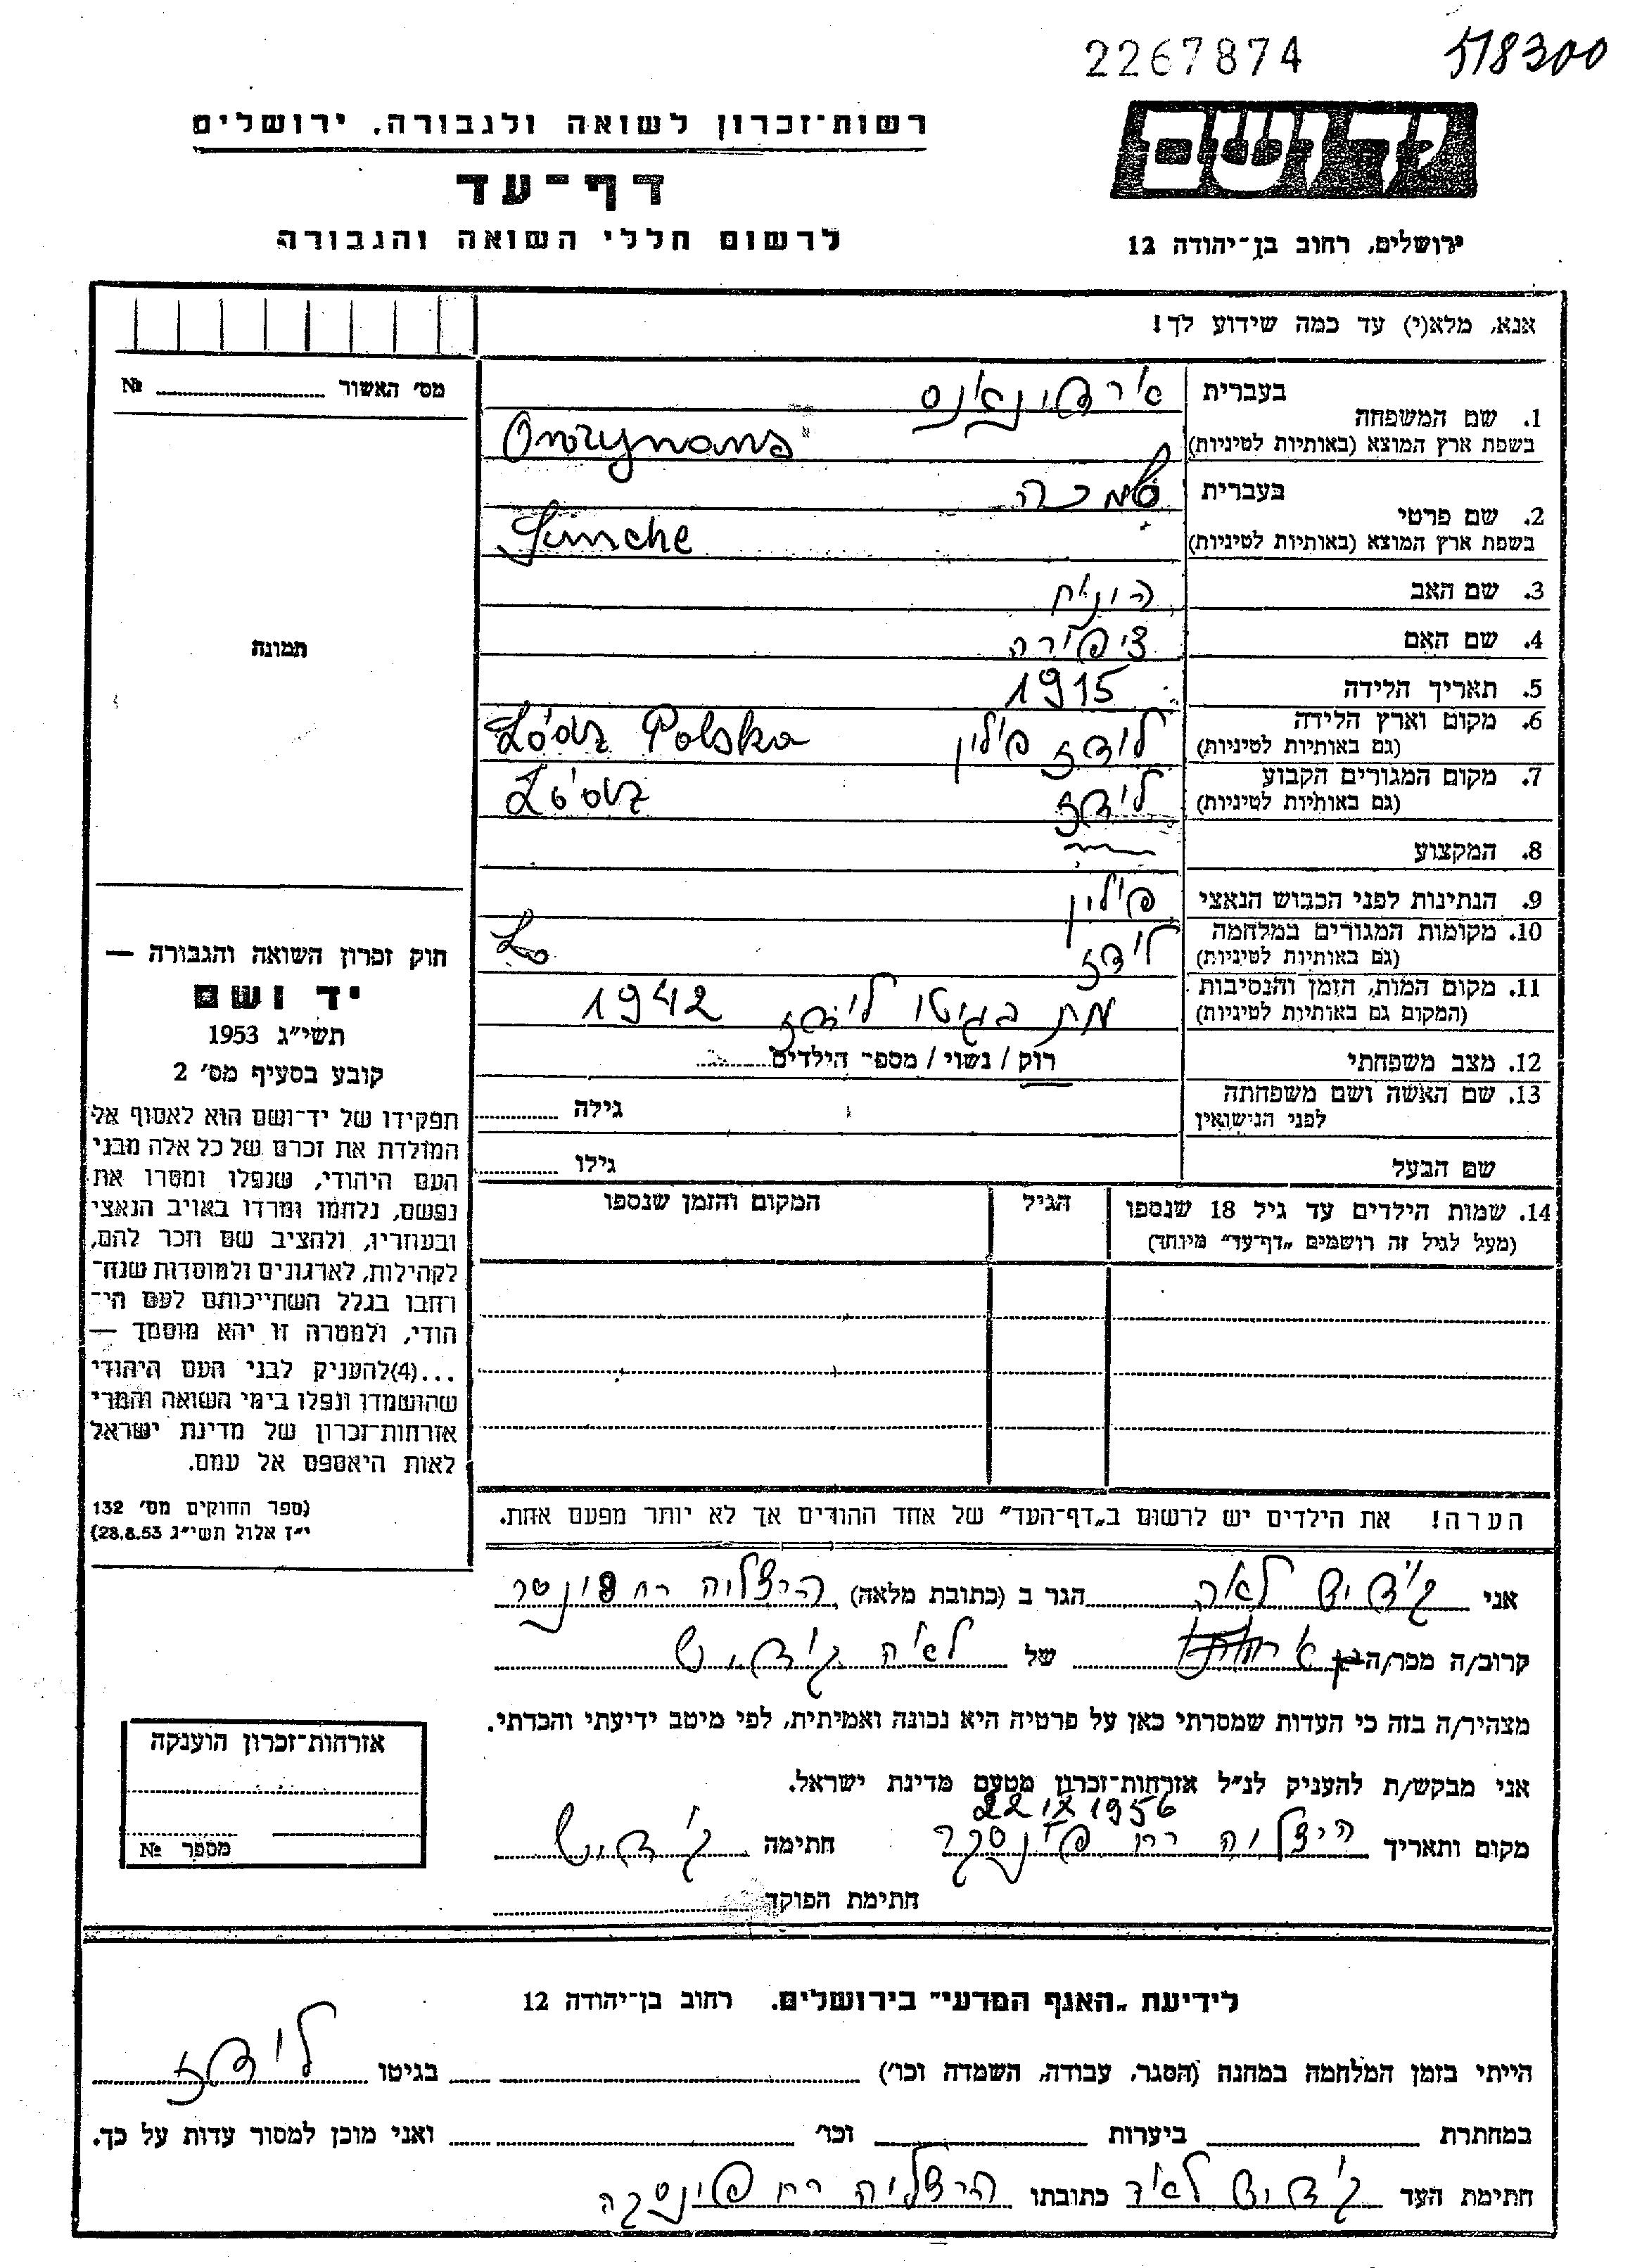 2267874 518300
יד ושם
ירושלים, רחוב בן־יהודה 12
רשות־זכרון לשואה ולגבורה, ירושלים
דף־עד
לרשום חללי השואה והגבורה
אנא, מלא(י) עד כמה שידוע לך!
מס׳ האשור № 
תמונה
בעברית
1. שם המשפחה
בשפת ארץ המוצא (באותיות לטיניות)
בעברית שמחה
2. שם פרטי
בשפת ארץ המוצא (באותיות לטיניות) Simche
3. שם האב
4. שם האם ציפורה
5. תאריך הלידה 1915
6. מקום וארץ הלידה לודז פולין Łódz Polska
(גם באותיות לטיניות)
7. מקום המגורים הקבוע לודז Łódz
(גם באותיות לטיניות)
8. המקצוע
9. הנתינות לפני הכבוש הנאצי פולין
10. מקומות המגורים במלחמה לודז Ło
(גם באותיות לטיניות)
11. מקום המות, הזמן והנסיבות מת בגיטו לודז 1942
(המקום גם באותיות לטיניות)
12. מצב משפחתי רוק / נשוי / מספר הילדים
13. שם האשה ושם משפחתה גילה
לפני הנישואין
שם הבעל גילו
14. שמות הילדים עד גיל 18 שנספו הגיל המקום והזמן שנספו
(מעל לגיל זה רושמים „דף־עד״ מיוחד)
הערה! את הילדים יש לרשום ב„דף־העד״ של אחד ההורים אך לא יותר מפעם אחת.
חוק זכרון השואה והגבורה —
יד ושם
תשי״ג 1953
קובע בסעיף מס׳ 2
תפקידו של יד־ושם הוא לאסוף אל
המולדת את זכרם של כל אלה מבני
העם היהודי, שנפלו ומסרו את
נפשם, נלחמו ומרדו באויב הנאצי
ובעוזריו, ולהציב שם וזכר להם,
לקהילות, לארגונים ולמוסדות שנח־
רחבו בגלל השתייכותם לעם הי־
הודי, ולמטרה זו יהא מוסמך —
...(4)להעניק לבני העם היהודי
שהושמדו ונפלו בימי השואה והמרי
אזרחות־זכרון של מדינת ישראל
לאות היאספם אל עמם.
(ספר החוקים מס׳ 132
י״ז אלול תשי״ג 28.8.53)
אני לאה הגר ב (כתובת מלאה) הרצליה רח
קרוב/ה מכר/ה של לאה
מצהיר/ה בזה כי העדות שמסרתי כאן על פרטיה היא נכונה ואמיתית, לפי מיטב ידיעתי והכרתי.
אני מבקש/ת להעניק לנ״ל אזרחות־זכרון מטעם מדינת ישראל.
1956
מקום ותאריך רח פינסקר חתימה
חתימת הפוקד
אזרחות־זכרון הוענקה
מספר №
לידיעת „האגף המדעי״ בירושלים. רחוב בן־יהודה 12
הייתי בזמן המלחמה במחנה (הסגר, עבודה, השמדה וכו׳) בגיטו לודז
במחתרת ביערות וכו׳ ואני מוכן למסור עדות על כך.
חתימת העד כתובתו הרצליה רח